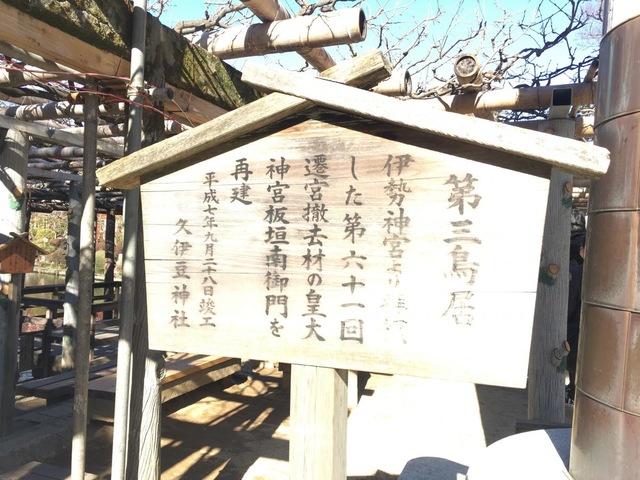 第三鳥居
伊勢神宮より
した第六十一回
遷宮撤去材の皇大
神宮板垣南御門を
再建
平成七年九月二十八日竣工
久伊豆神社